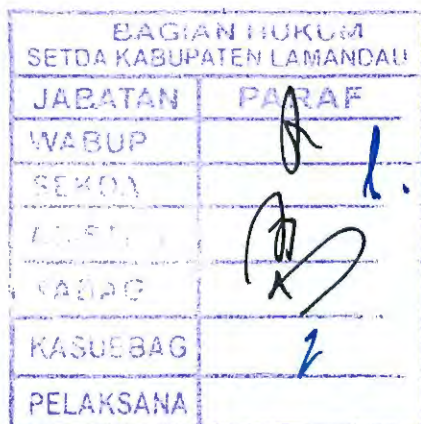 BAGIAN HUKUM
SETDA KABUPATEN LAMANDAU
JABATAN PARAF
WABUP
SEKDA
KABAG
KASUBBAG
PELAKSANA